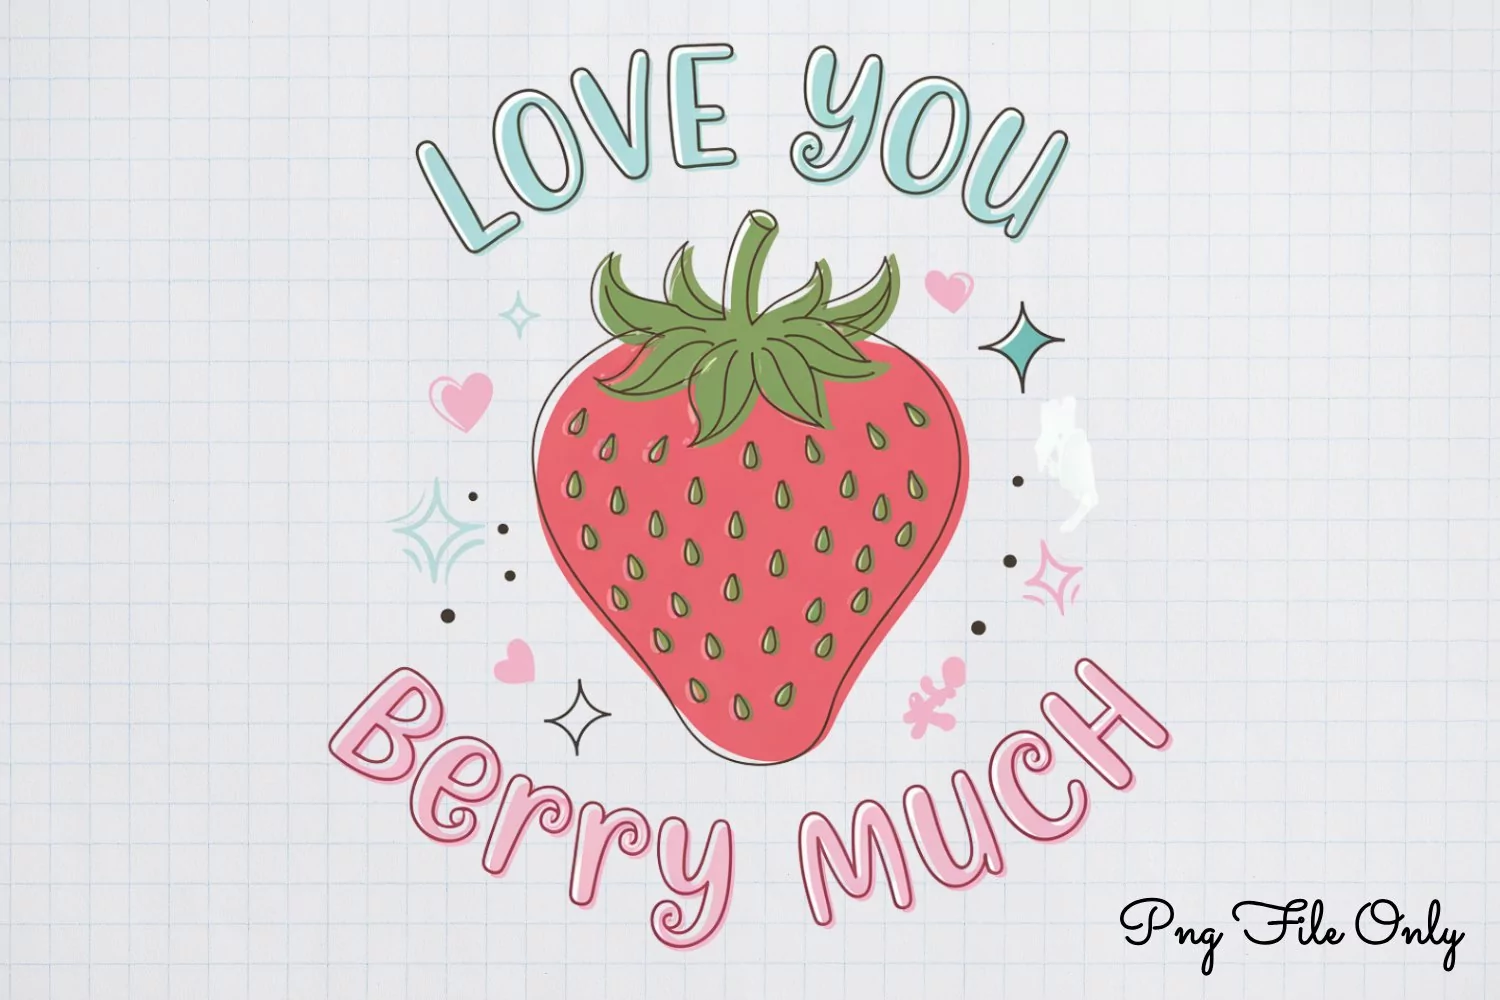 LOVE YOU
Berry MUCH
Png File Only